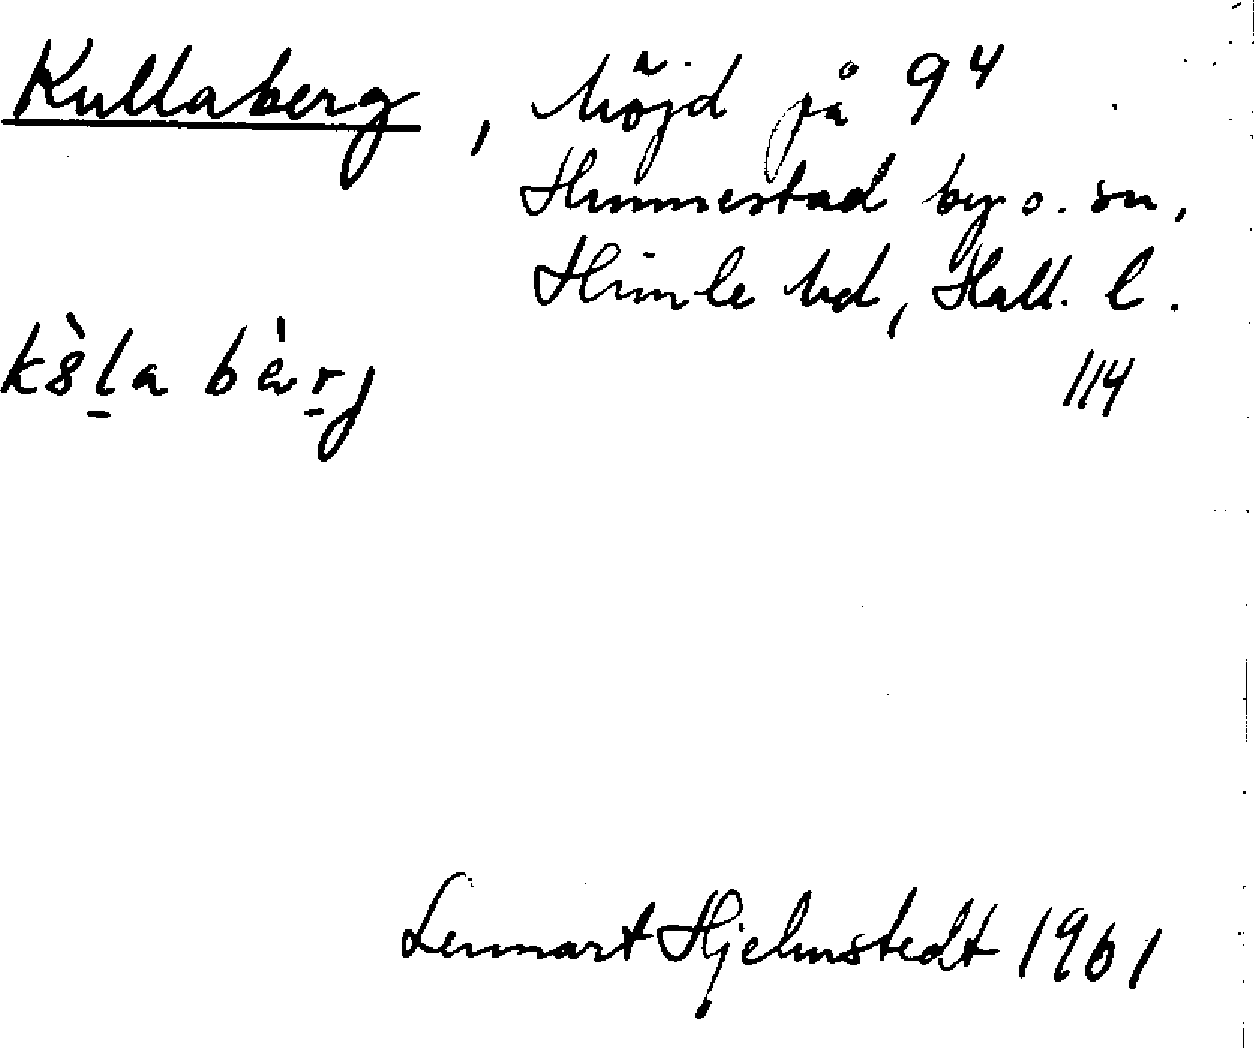 Kullaberg, höjd på 9⁴
Hunnestad by o. sn,
Himle hd, Hall. l.
114
Lennart Hjelmstedt 1961